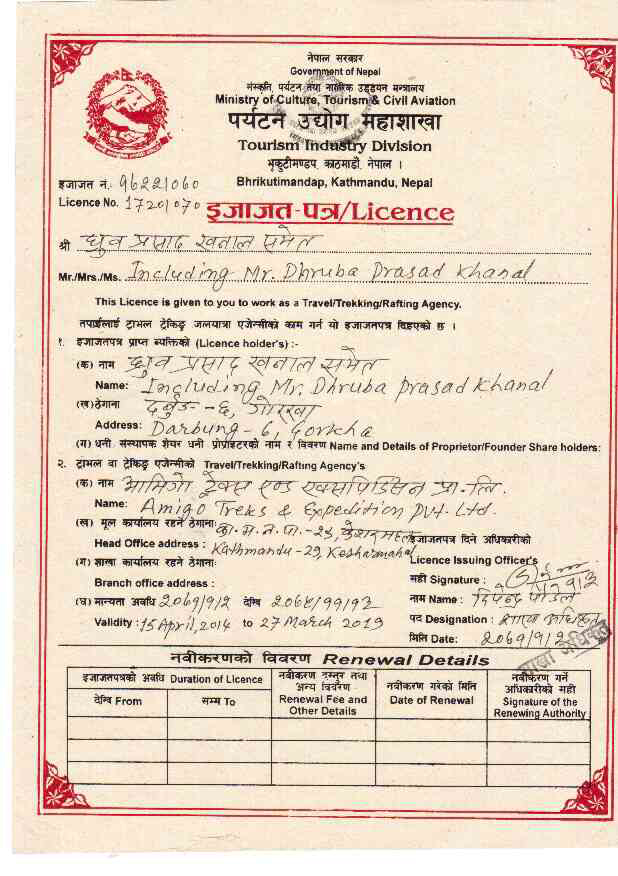 नेपाल सरकार
Government of Nepal
संस्कृति, पर्यटन तथा नागरिक उड्डयन मन्त्रालय
Ministry of Culture, Tourism & Civil Aviation
पर्यटन उद्योग महाशाखा
Tourism Industry Division
भृकुटीमण्डप, काठमाडौं, नेपाल ।
Bhrikutimandap, Kathmandu, Nepal
इजाजत नं.
Licence No. 1720/070
इजाजत-पत्र/Licence
श्री ध्रुव प्रसाद खनाल समेत
Mr./Mrs./Ms. Including Mr. Dhruba Prasad Khanal
This Licence is given to you to work as a Travel/Trekking/Rafting Agency.
तपाईलाई ट्राभल ट्रेकिङ्ग जलयात्रा एजेन्सीको काम गर्न यो इजाजतपत्र दिइएको छ ।
१. इजाजतपत्र प्राप्त ब्यक्तिको (Licence holder's) :-
(क) नाम ध्रुव प्रसाद खनाल समेत
Name: Including Mr. Dhruba prasad Khanal
(ख) ठेगाना दर्बुङ -६, गोरखा
Address: Darbung - 6, Gorkha
(ग) धनी संस्थापक शेयर धनी प्रोप्राइटरको नाम र विवरण Name and Details of Proprietor/Founder Share holders:
२. ट्राभल वा ट्रेकिङ्ग एजेन्सीको Travel/Trekking/Rafting Agency's
(क) नाम आमिगो ट्रेक्स एण्ड एक्सपिडिसन प्रा. लि.
Name: Amigo Treks & Expedition Pvt. Ltd.
(ख) मूल कार्यालय रहने ठेगाना: का. म. न. पा. -२९, केशरमहल
Head Office address : Kathmandu -29, Kesharmahal
(ग) शाखा कार्यालय रहने ठेगाना:
Branch office address :
(घ) मान्यता अवधि देखि
Validity : 15 April, 2014 to 27 March 2019
इजाजतपत्र दिने अधिकारीको
Licence Issuing Officer's
सही Signature :
नाम Name : दिपेन्द्र पौडेल
पद Designation : शाखा अधिकृत
मिति Date:
शाखा अधिकृत
नवीकरणको विवरण Renewal Details
इजाजतपत्रको अवधि Duration of Licence
देखि From
सम्म To
नवीकरण दस्तुर तथा
अन्य विवरण
Renewal Fee and
Other Details
नवीकरण गरेको मिति
Date of Renewal
नवीकरण गर्ने
अधिकारीको सही
Signature of the
Renewing Authority